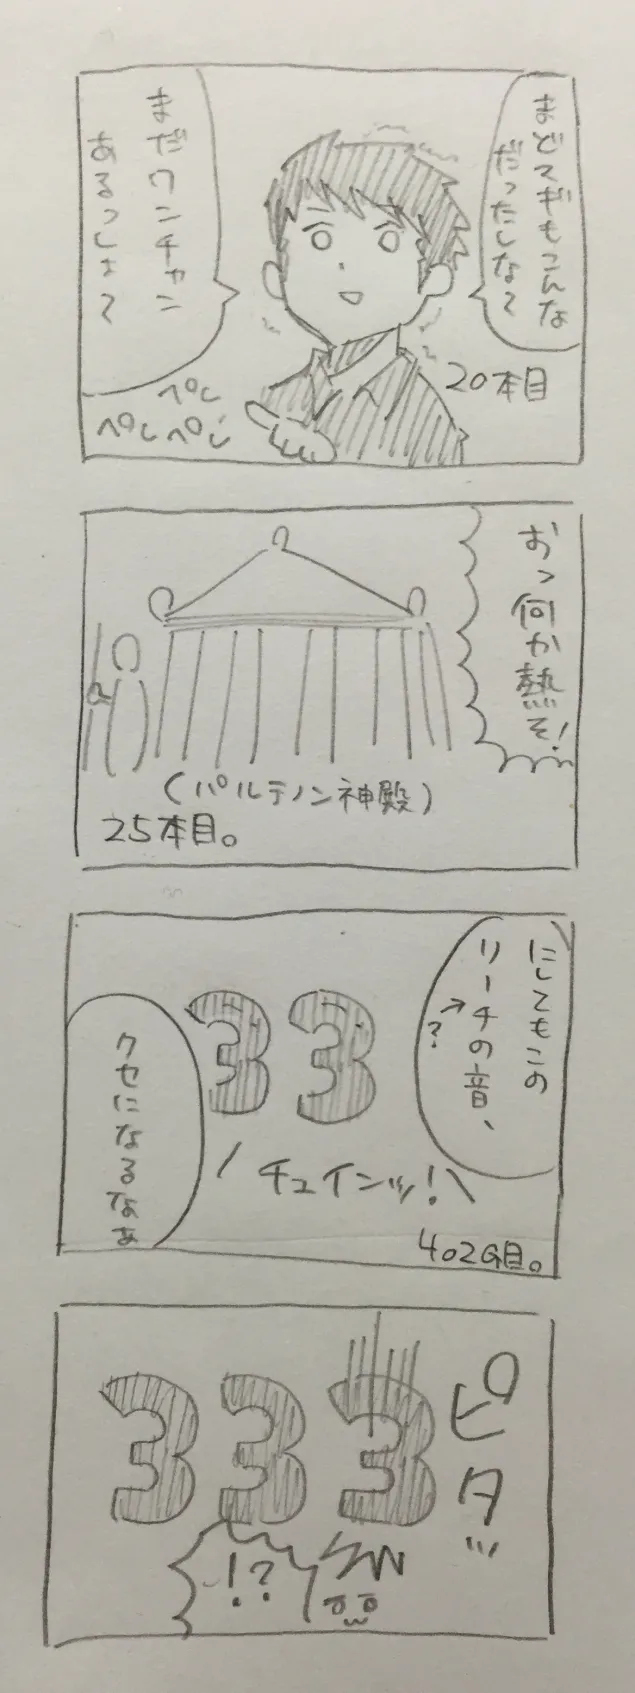 まどマギもこんな
だったしなぁ
まだワンチャン
あるっしょぐ
ペし
ペしペし
20本目
おっ何か熱そ!
(パルテノン神殿)
25本目。
にしてもこの
リーチの音、
→?
クセになるなぁ
33
チュインッ!
402G目。
333
ピタッ
!?